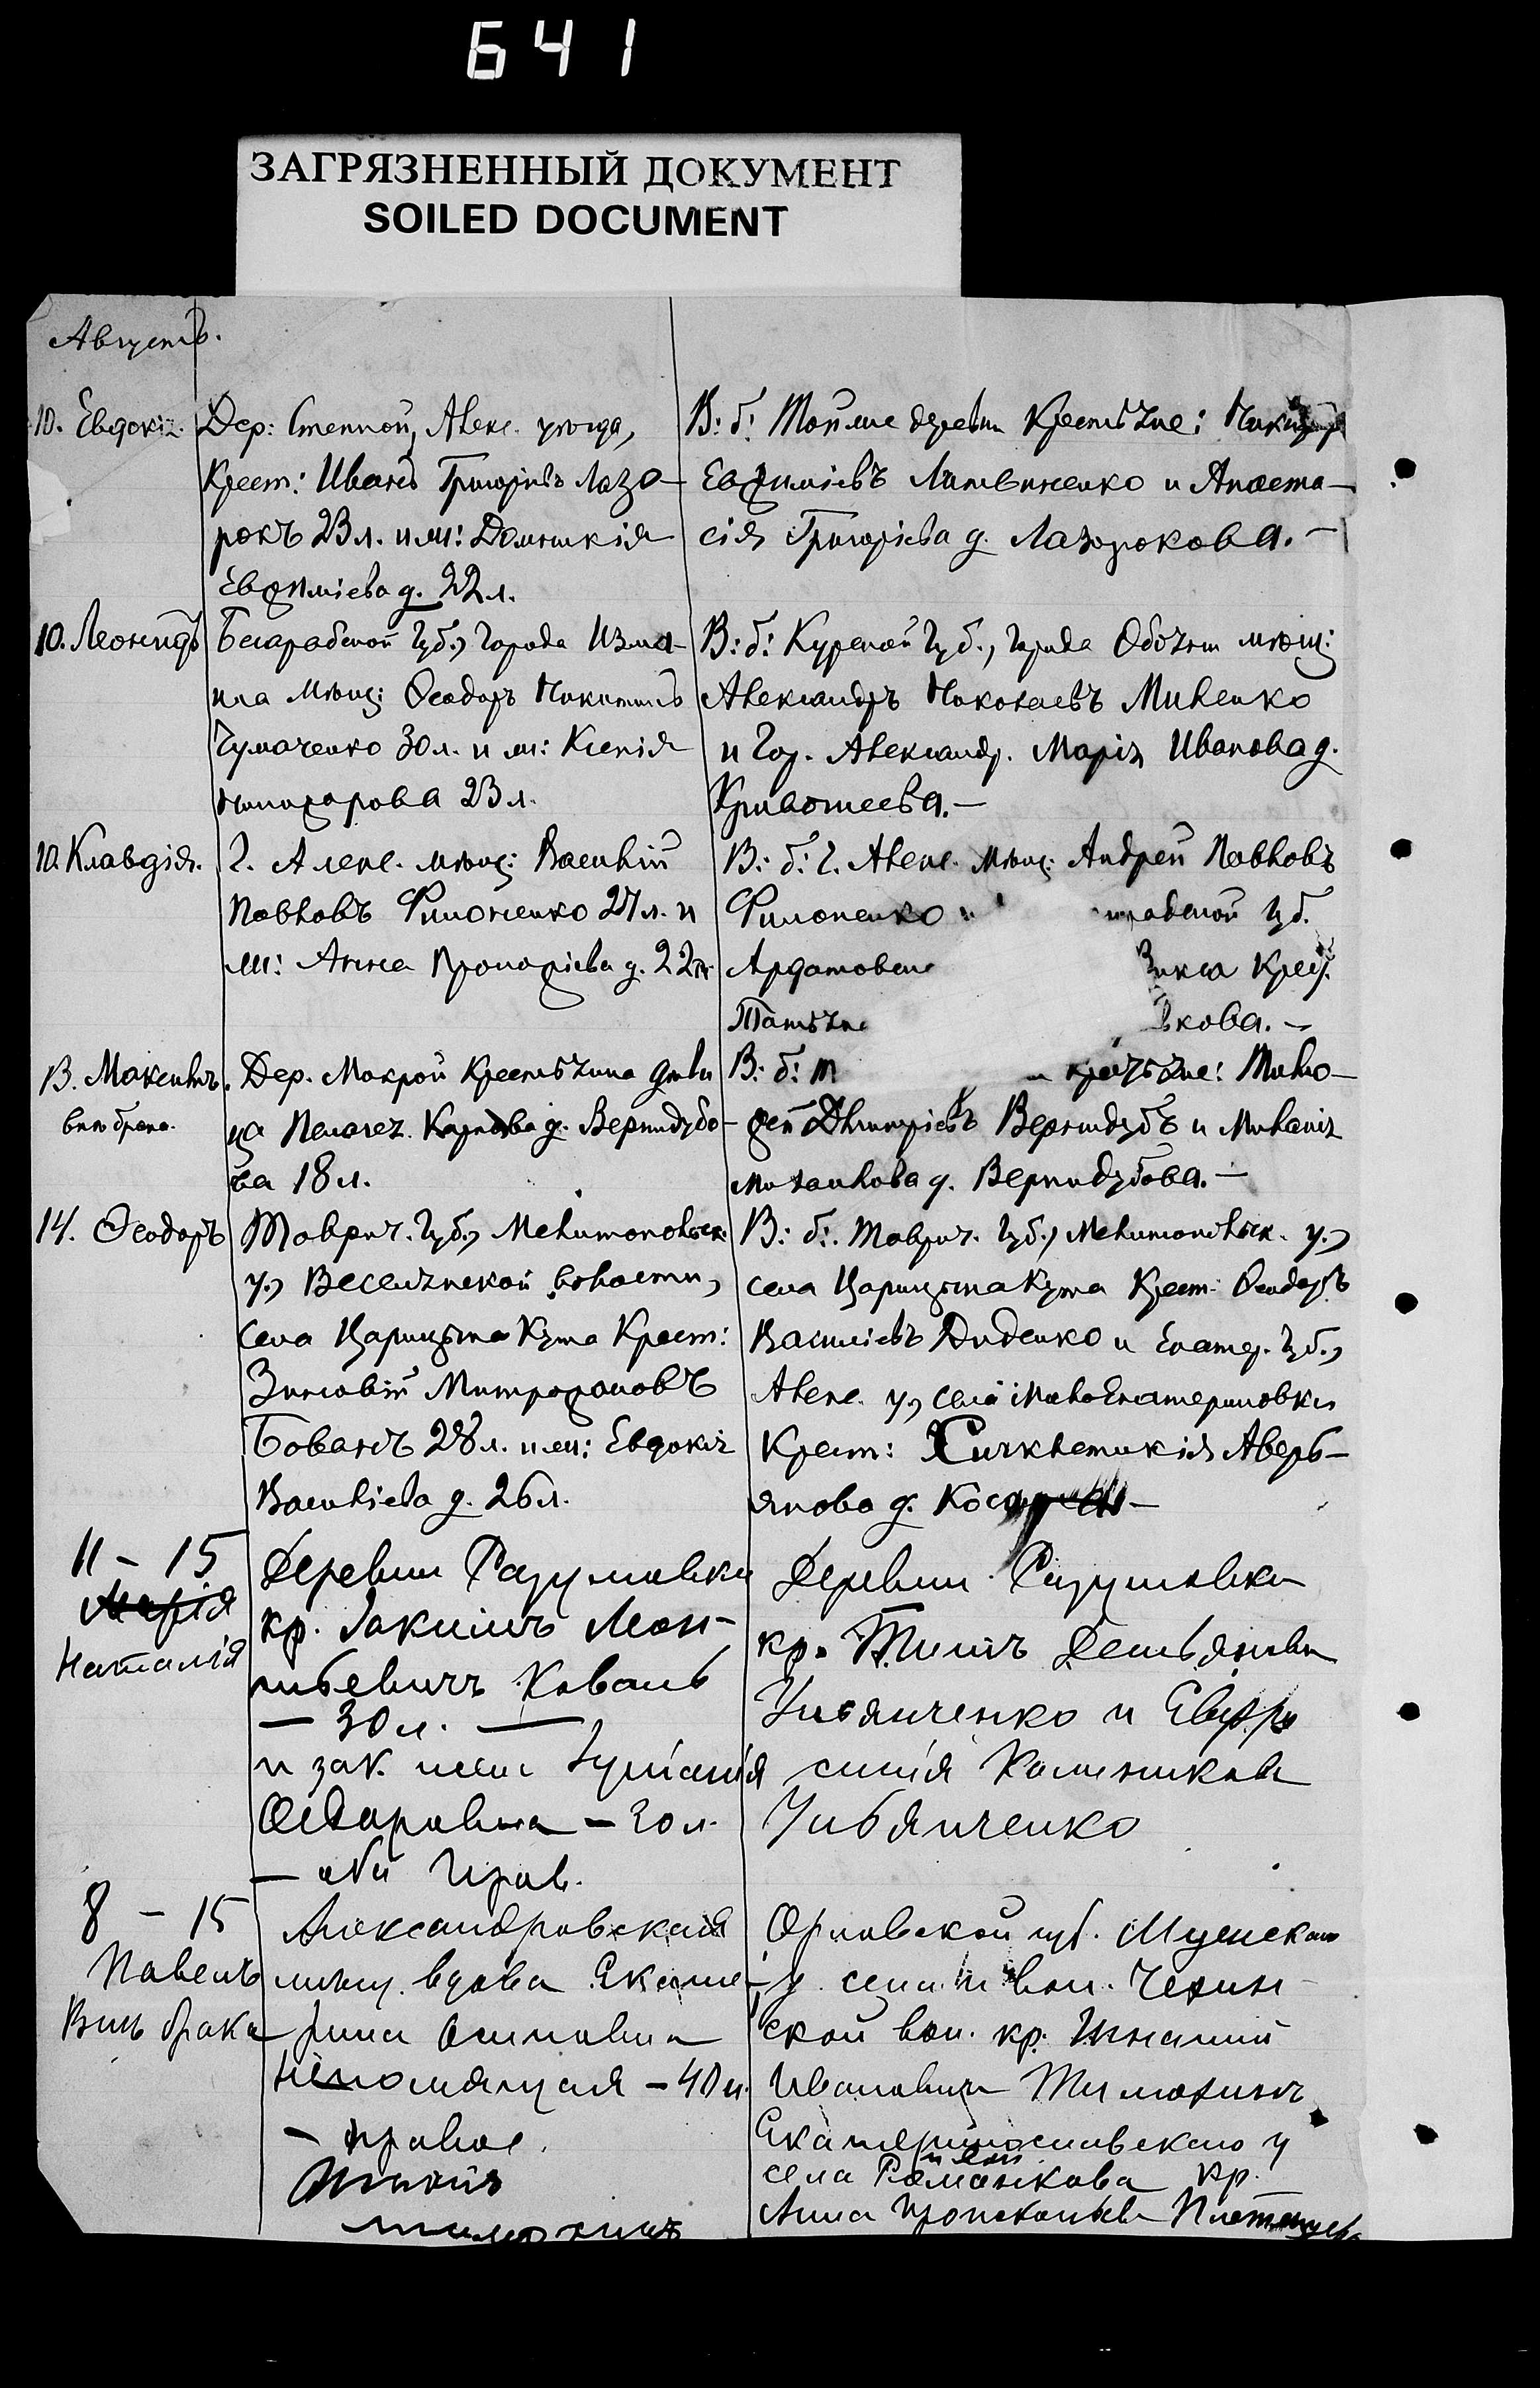 641
ЗАГРЯЗНЕННЫЙ ДОКУМЕНТ
SOILED DOCUMENT
Августъ.
10. Евдокія.
Дер: Степной, Алекс. уѣзда,
Крест: Иванъ Григорьевъ Лазо-
рокъ 23 л. и ж: Домникія
Евѳиміева д. 22 л.
В: б: Той же деревни Крестьяне:
Евѳиміевъ Литвиненко и Анаста-
сія Григоріева д. Лазорокова. —
10. Леонидъ
Бесарабской Губ., города Изма-
ила Мѣщ: Ѳеодоръ Никитинъ
Чумаченко 30 л. и ж: Ксенія
23 л.
В: б: Курской Губ., города Обояни мѣщ:
Александръ Николаевъ Миненко
и Гор. Александр. Марія Иванова д.
Кривошеева. —
10. Клавдія.
Г. Алекс. мѣщ: Василій
Павловъ Филоненко 27 л. и
ж: Анна Григоріева д. 22 л.
В: б: г. Алекс. Мѣщ: Андрей Павловъ
Филоненко и губ.
Ардатовск Крест.
Татьяна кова. —
13. Максимъ.
внѣ брака.
Дер. Мокрой Крестьянина дѣви
ца Пелагея Карпова д. Вернидубо-
ва 18 л.
В: б: т крестьяне: Тимо-
фей Дмитріевъ Вернидубъ и Меланія
Михайлова д. Вернидубова. —
14. Ѳеодоръ
Таврич. Губ., Мелитопольск.
у., Веселянской волости,
села Царицына Кута Крест:
Зиновій Митрофановъ
Бованъ 28 л. и ж: Евдокія
Васильева д. 26 л.
В: б: Таврич. Губ., Мелитопольск. у.,
села Царицына Кута Крест: Ѳеодоръ
Василіевъ Диденко и Екатер. Губ.,
Алекс. у., села МалоЕкатериновки
Крест: Синклетикія Аверь-
янова д.
11 - 15
Марія
Наталія
Деревни Разумовки
кр. Іакимъ Леон-
тьевичъ Коваль
— 30 л. —
и зак. жена Іуліанія
Ѳедоровна — 30 л.
— оба прав.
Деревни Разумовки
кр. Демьяновъ
Ульянченко и Евфро
синія Калиникова
Ульянченко
8 - 15
Павелъ
Внѣ брака
Александровская
мѣщ. вдова Екате-
рина Осиповна
Непомящая — 40 л.
— православ.
Орловской губ. Мценскаго
у. села и вол.
ской вол. кр. Игнатій
Ивановичъ Тимохинъ
Екатеринославскаго у
села Романкова кр.
Анна Прокопьева